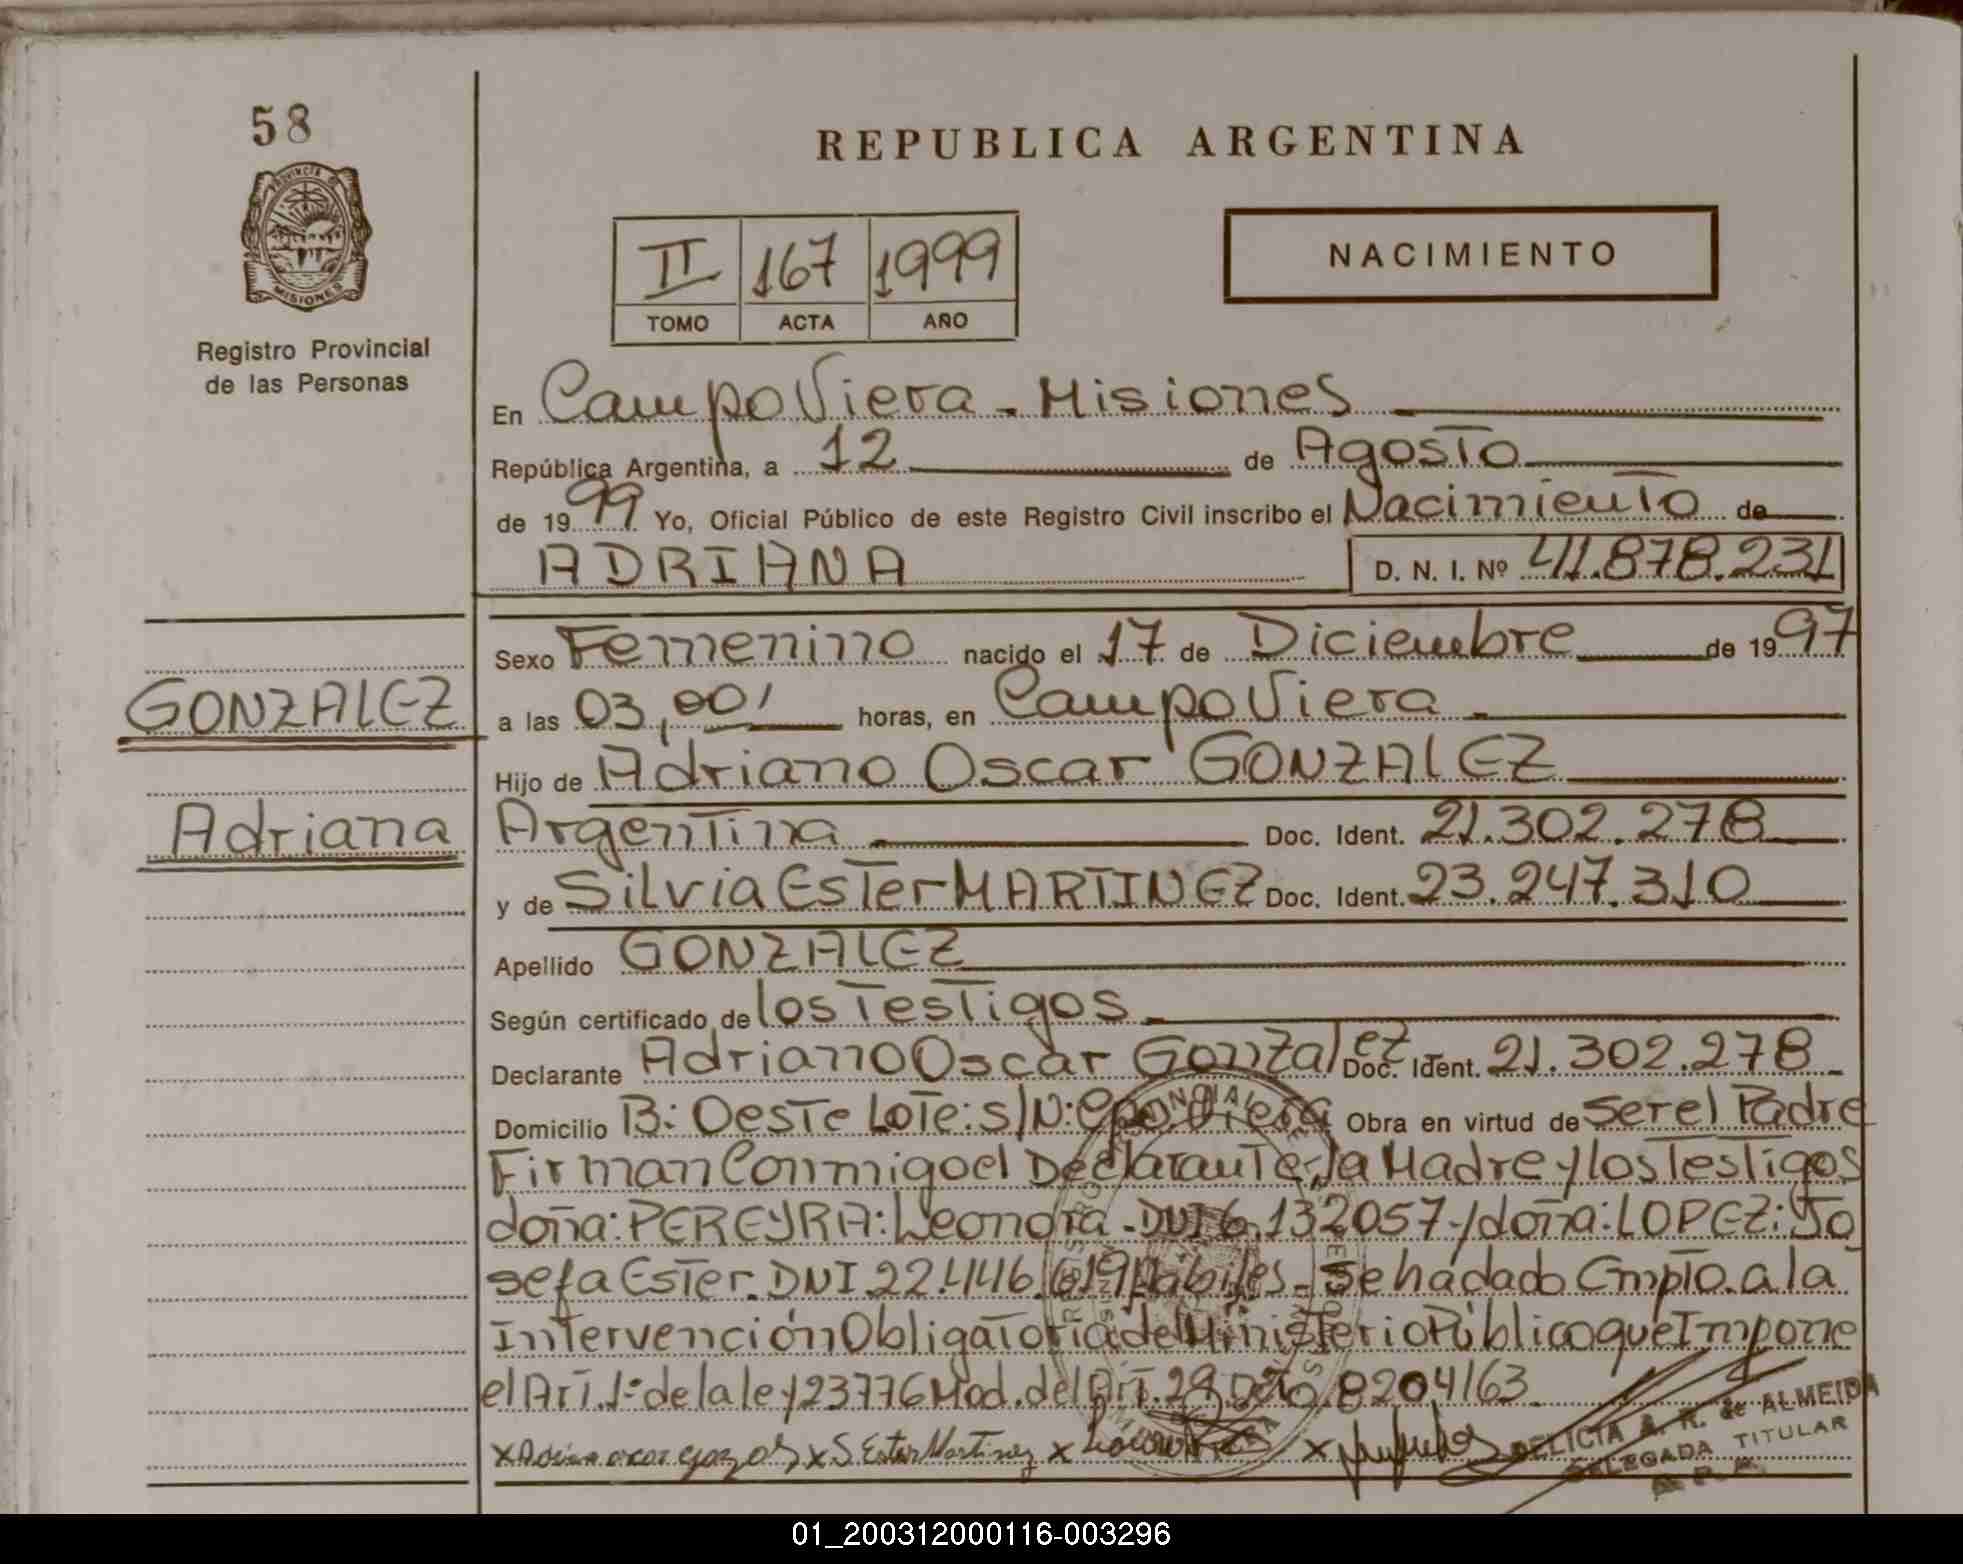 58
REPUBLICA ARGENTINA
PROVINCIA DE
MISIONES
Registro Provincial
de las Personas
II 167 1999
TOMO ACTA AÑO
NACIMIENTO
En Campo Viera - Misiones
República Argentina, a 12 de Agosto
de 1999 Yo, Oficial Público de este Registro Civil inscribo el Nacimiento de
ADRIANA D. N. I. Nº 41.878.231
Sexo Femenino nacido el 17 de Diciembre de 1997
GONZALEZ
a las 03,00' horas, en Campo Viera
Hijo de Adriano Oscar GONZALEZ
Adriana
Argentina Doc. Ident. 21.302.278
y de Silvia Ester MARTINEZ Doc. Ident. 23.247.310
Apellido GONZALEZ
Según certificado de los Testigos
Declarante Adriano Oscar Gonzalez Doc. Ident. 21.302.278
Domicilio B: Oeste Lote: S/N: Cpo. Viera Obra en virtud de Ser el Padre
Firman Conmigo el Declarante, la Madre y los Testigos
doña: PEREYRA: Leonora - DNI 6.132057 - y doña: LOPEZ: Jo
sefa Ester. DNI 22.446.619 Habiles - Se ha dado Cmpto. a la
Intervención Obligatoria del Ministerio Público que Impone
el Art. 1º de la ley 23776 Mod. del Art. 29 Dto. 8204/63
x S Ester Martinez x x
DELICIA A. R. de ALMEIDA
DELEGADA TITULAR
01_200312000116-003296